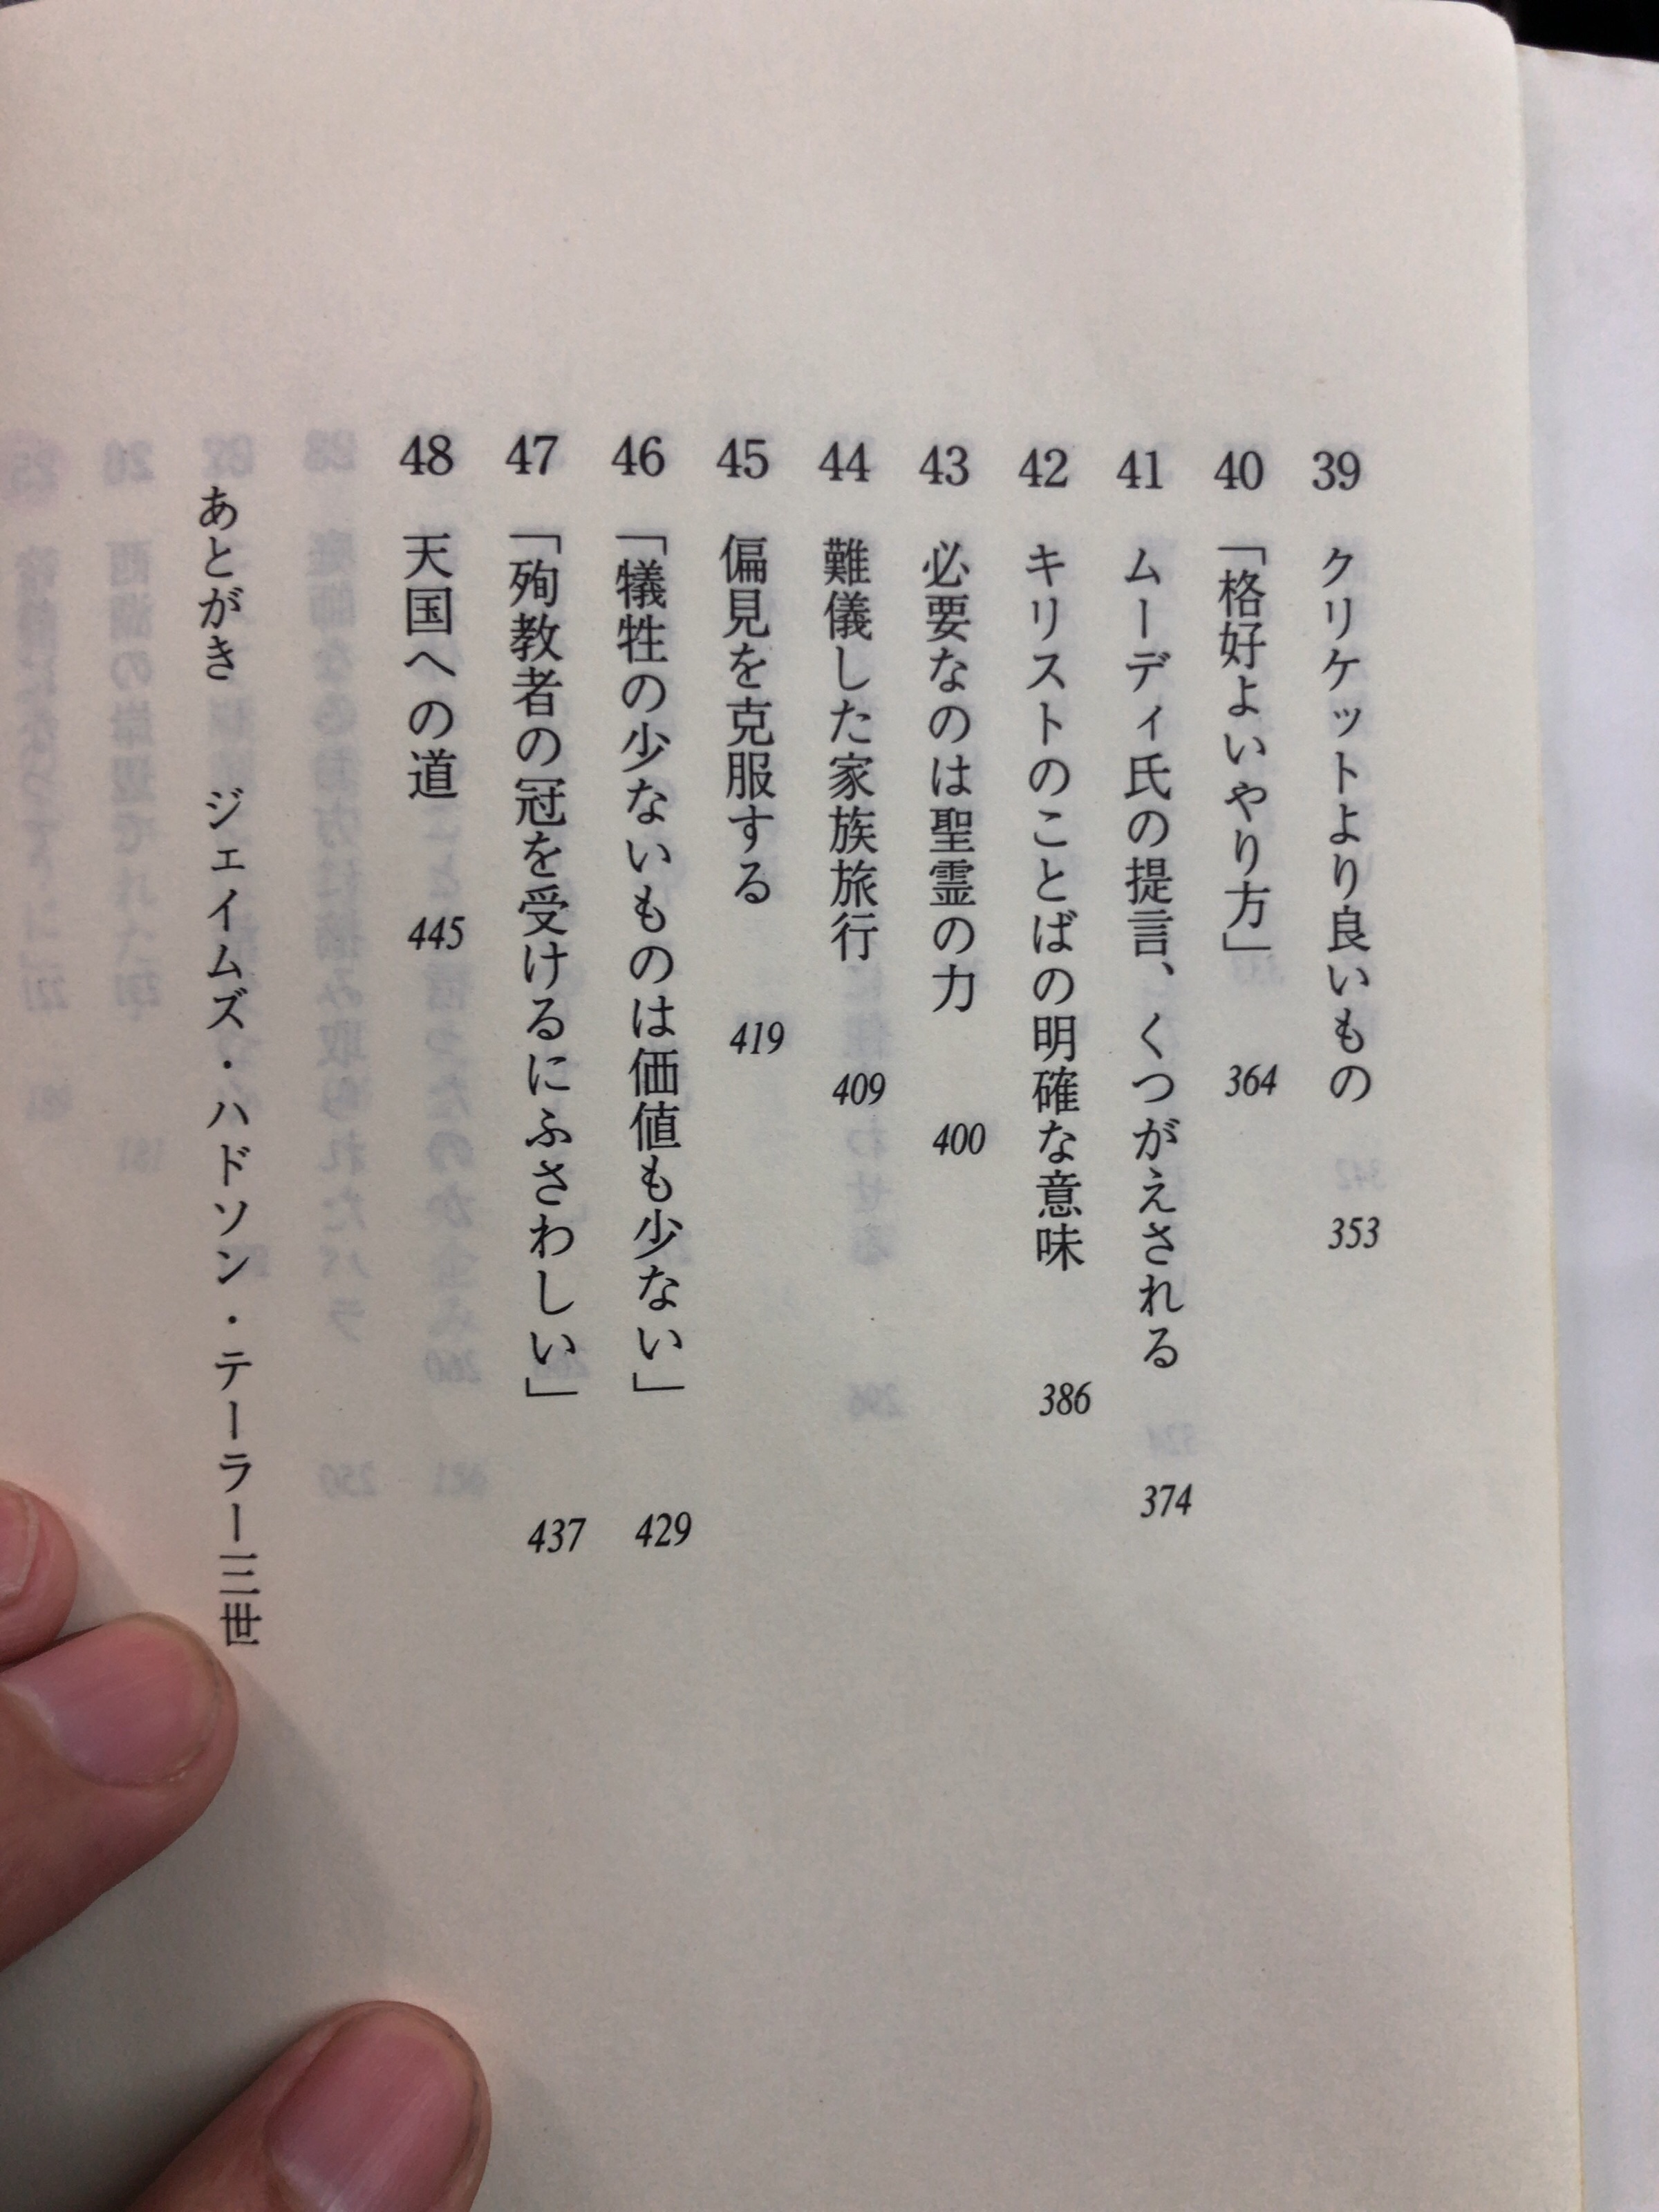 39 クリケットより良いもの 353
40 「格好よいやり方」 364
41 ムーディ氏の提言、くつがえされる 374
42 キリストのことばの明確な意味 386
43 必要なのは聖霊の力 400
44 難儀した家族旅行 409
45 偏見を克服する 419
46 「犠牲の少ないものは価値も少ない」 429
47 「殉教者の冠を受けるにふさわしい」 437
48 天国への道 445
あとがき ジェイムズ・ハドソン・テーラー三世